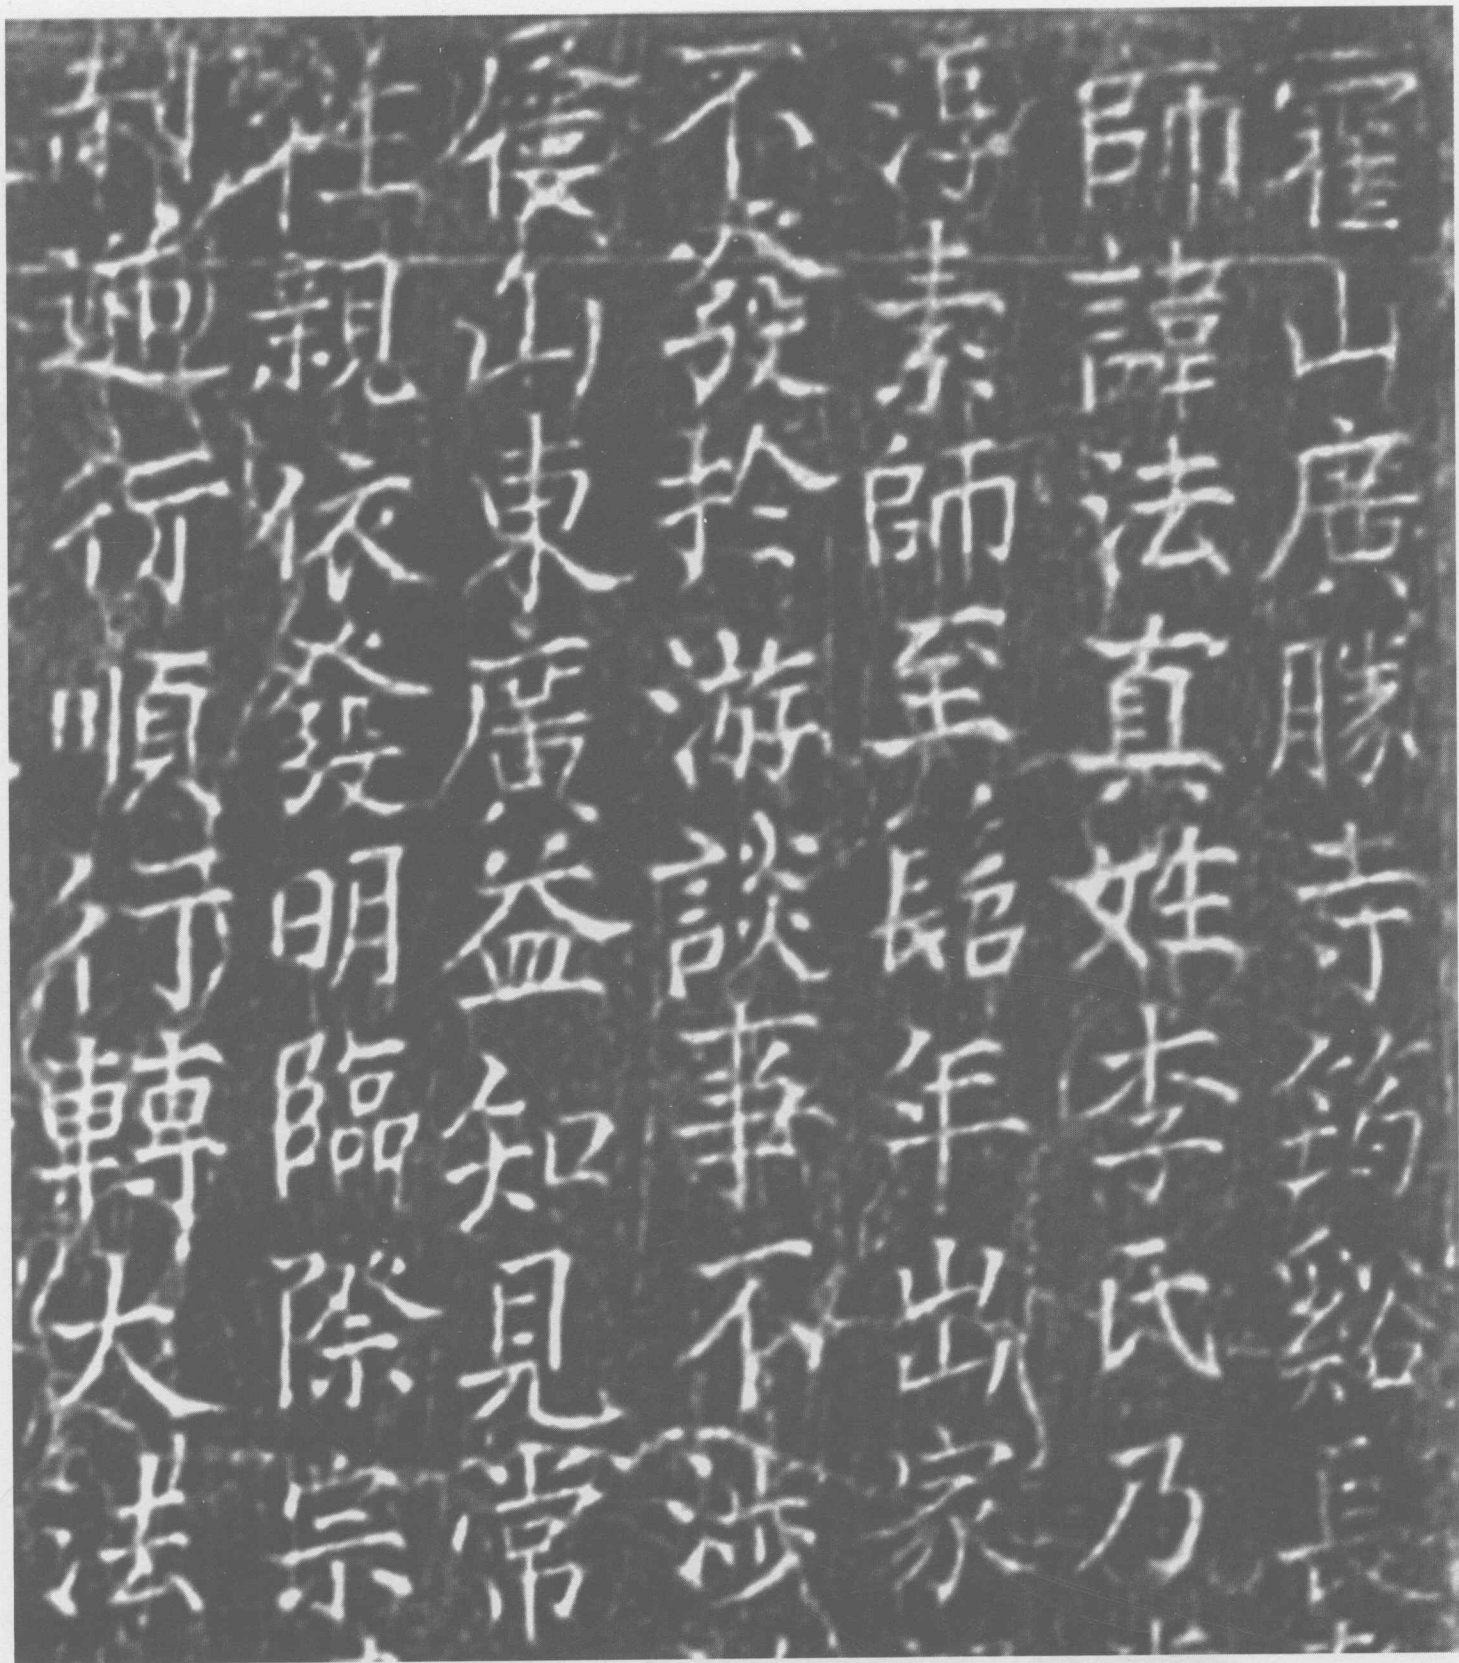 霍山廣勝寺筠谿長
師諱法真姓李氏乃
淳素師至髫年出家
不發於游談事不涉
僂山東廣益知見常
往親依發明臨際宗
制逆行順行轉大法